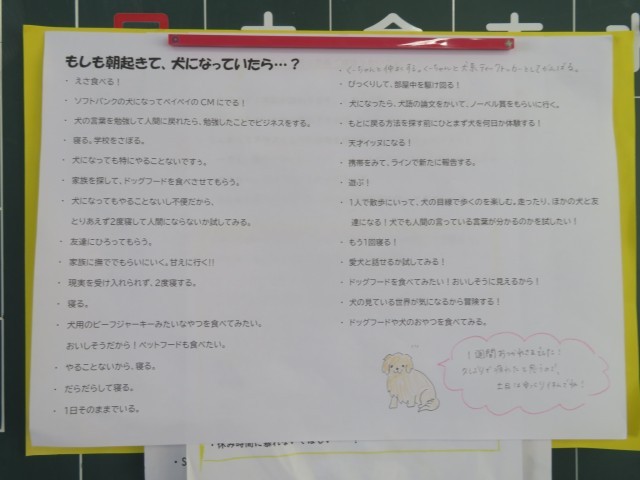 もしも朝起きて、犬になっていたら…？
・ えさ食べる！
・ ソフトバンクの犬になってペイペイのCMにでる！
・ 犬の言葉を勉強して人間に戻れたら、勉強したことでビジネスをする。
・ 寝る。学校をさぼる。
・ 犬になっても特にやることないですぅ。
・ 家族を探して、ドッグフードを食べさせてもらう。
・ 犬になってもやることないし不便だから、
とりあえず2度寝して人間にならないか試してみる。
・ 友達にひろってもらう。
・ 家族に撫でてもらいにいく。甘えに行く!!
・ 現実を受け入れられず、2度寝する。
・ 寝る。
・ 犬用のビーフジャーキーみたいなやつを食べてみたい。
おいしそうだから！ペットフードも食べたい。
・ やることないから、寝る。
・ だらだらして寝る。
・ 1日そのままでいる。
・ びっくりして、部屋中を駆け回る！
・ 犬になったら、犬語の論文をかいて、ノーベル賞をもらいに行く。
・ もとに戻る方法を探す前にひとまず犬を何日か体験する！
・ 天才イッヌになる！
・ 携帯をみて、ラインで新たに報告する。
・ 遊ぶ！
・ 1人で散歩にいって、犬の目線で歩くのを楽しむ。走ったり、ほかの犬と友
達になる！犬でも人間の言っている言葉が分かるのかを試したい！
・ もう1回寝る！
・ 愛犬と話せるか試してみる！
・ ドッグフードを食べてみたい！おいしそうに見えるから！
・ 犬の見ている世界が気になるから冒険する！
・ ドッグフードや犬のおやつを食べてみる。
1週間おつかれさまでした！